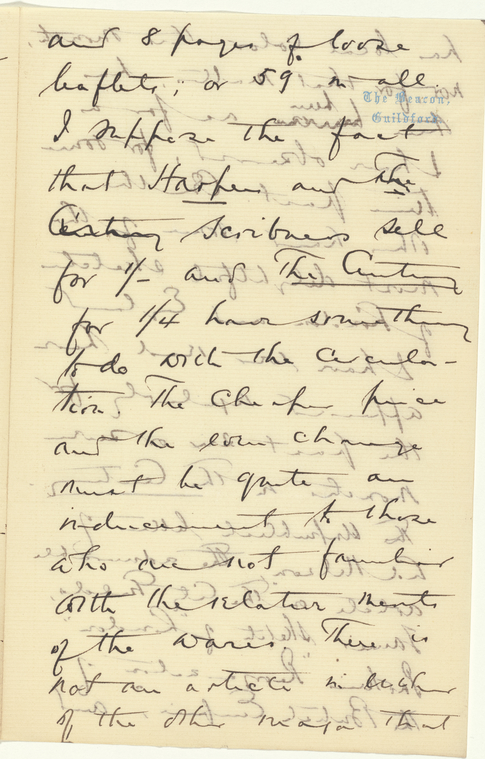 and 8 pages of loose
leaflets; or 59 in all.
The Beacon,
Guildford.
I suppose the fact
that Harper and The
Century Scribners sell
for 1/- and The Century
for 1/4 have something
to do with the circula-
tion. The cheaper price
and the even change
must be quite an
inducement to those
who are not familiar
with the relative merits
of the wares. There is
not an article in either
of the other mags that